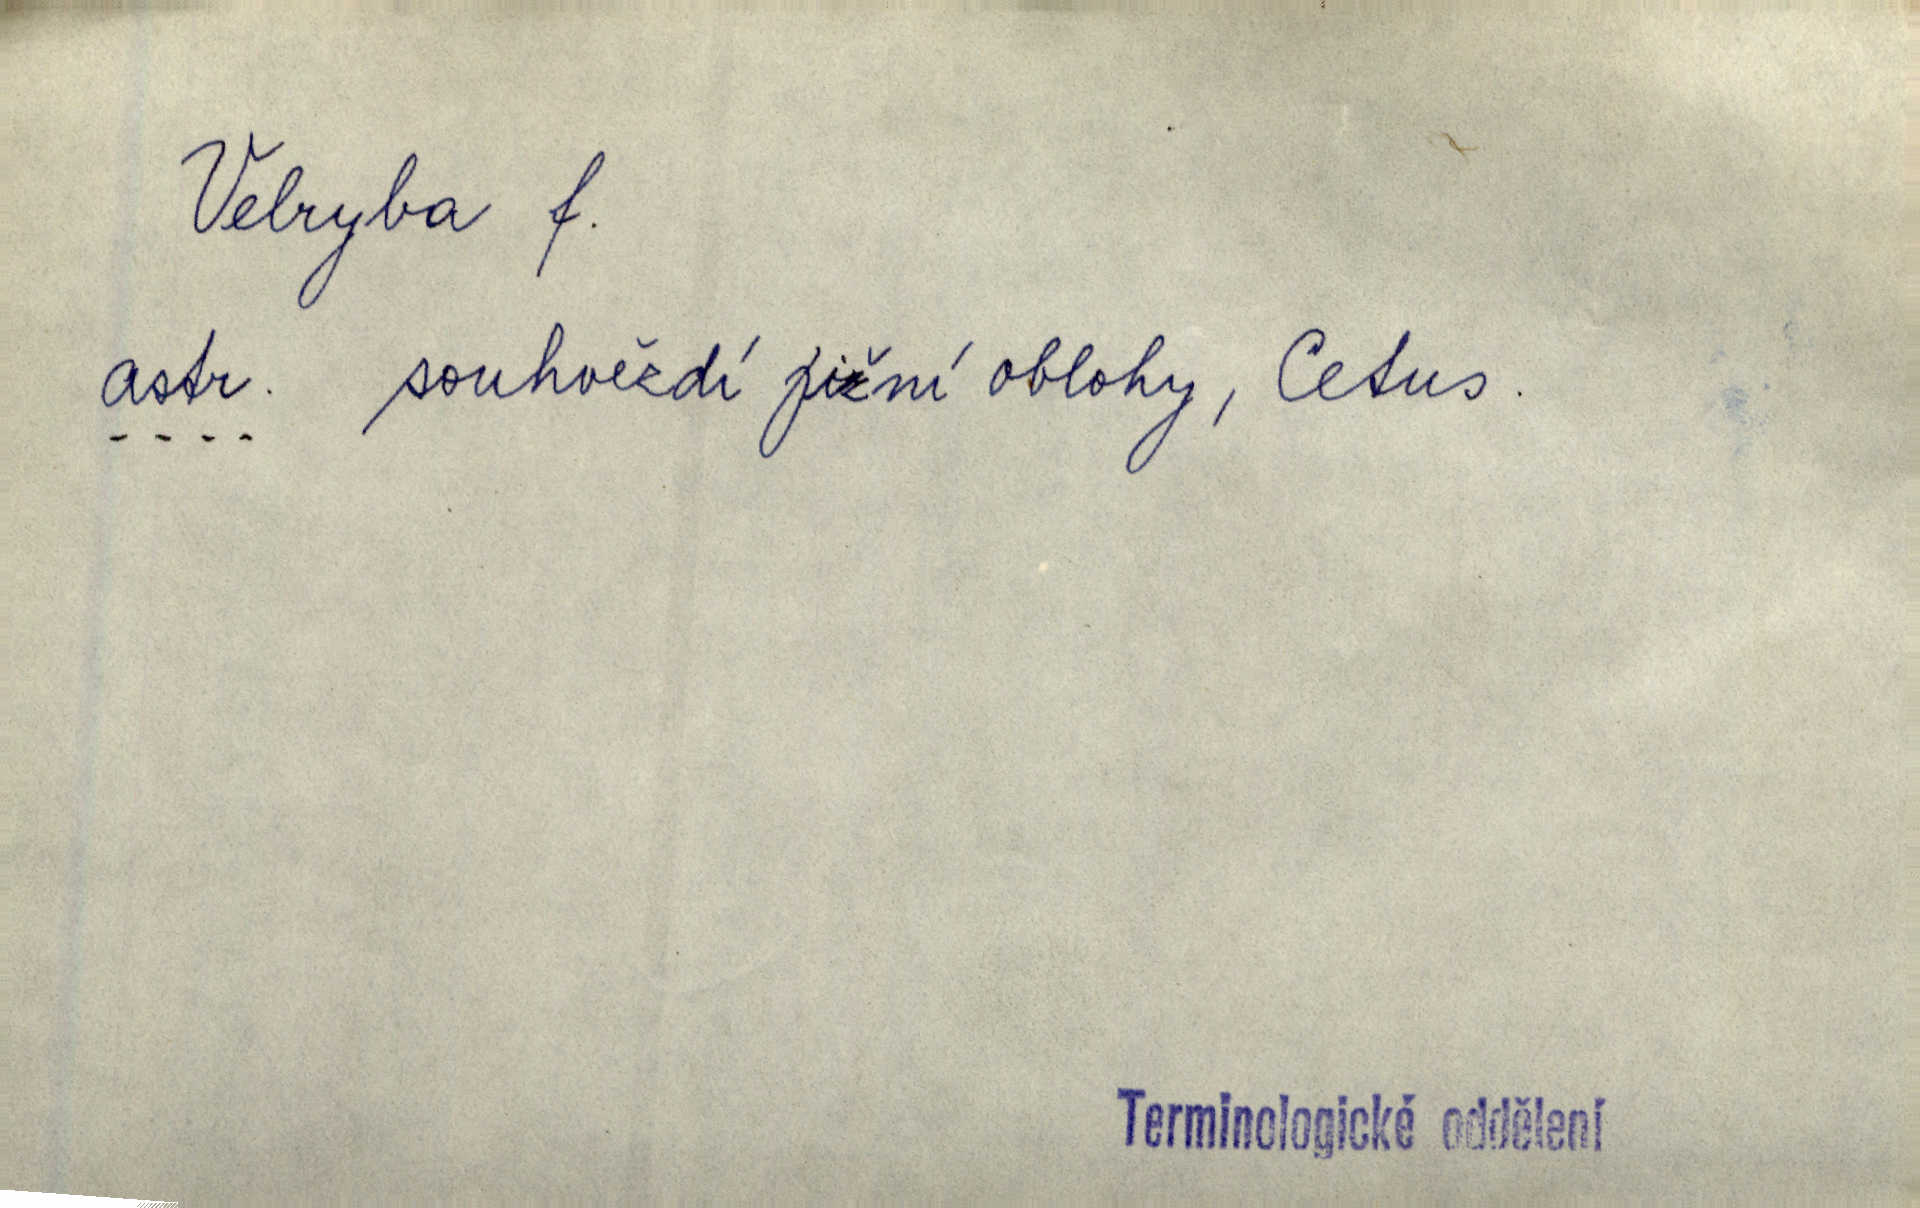 Velryba f.
astr. souhvězdí jižní oblohy, Cetus.
Terminologické oddělení